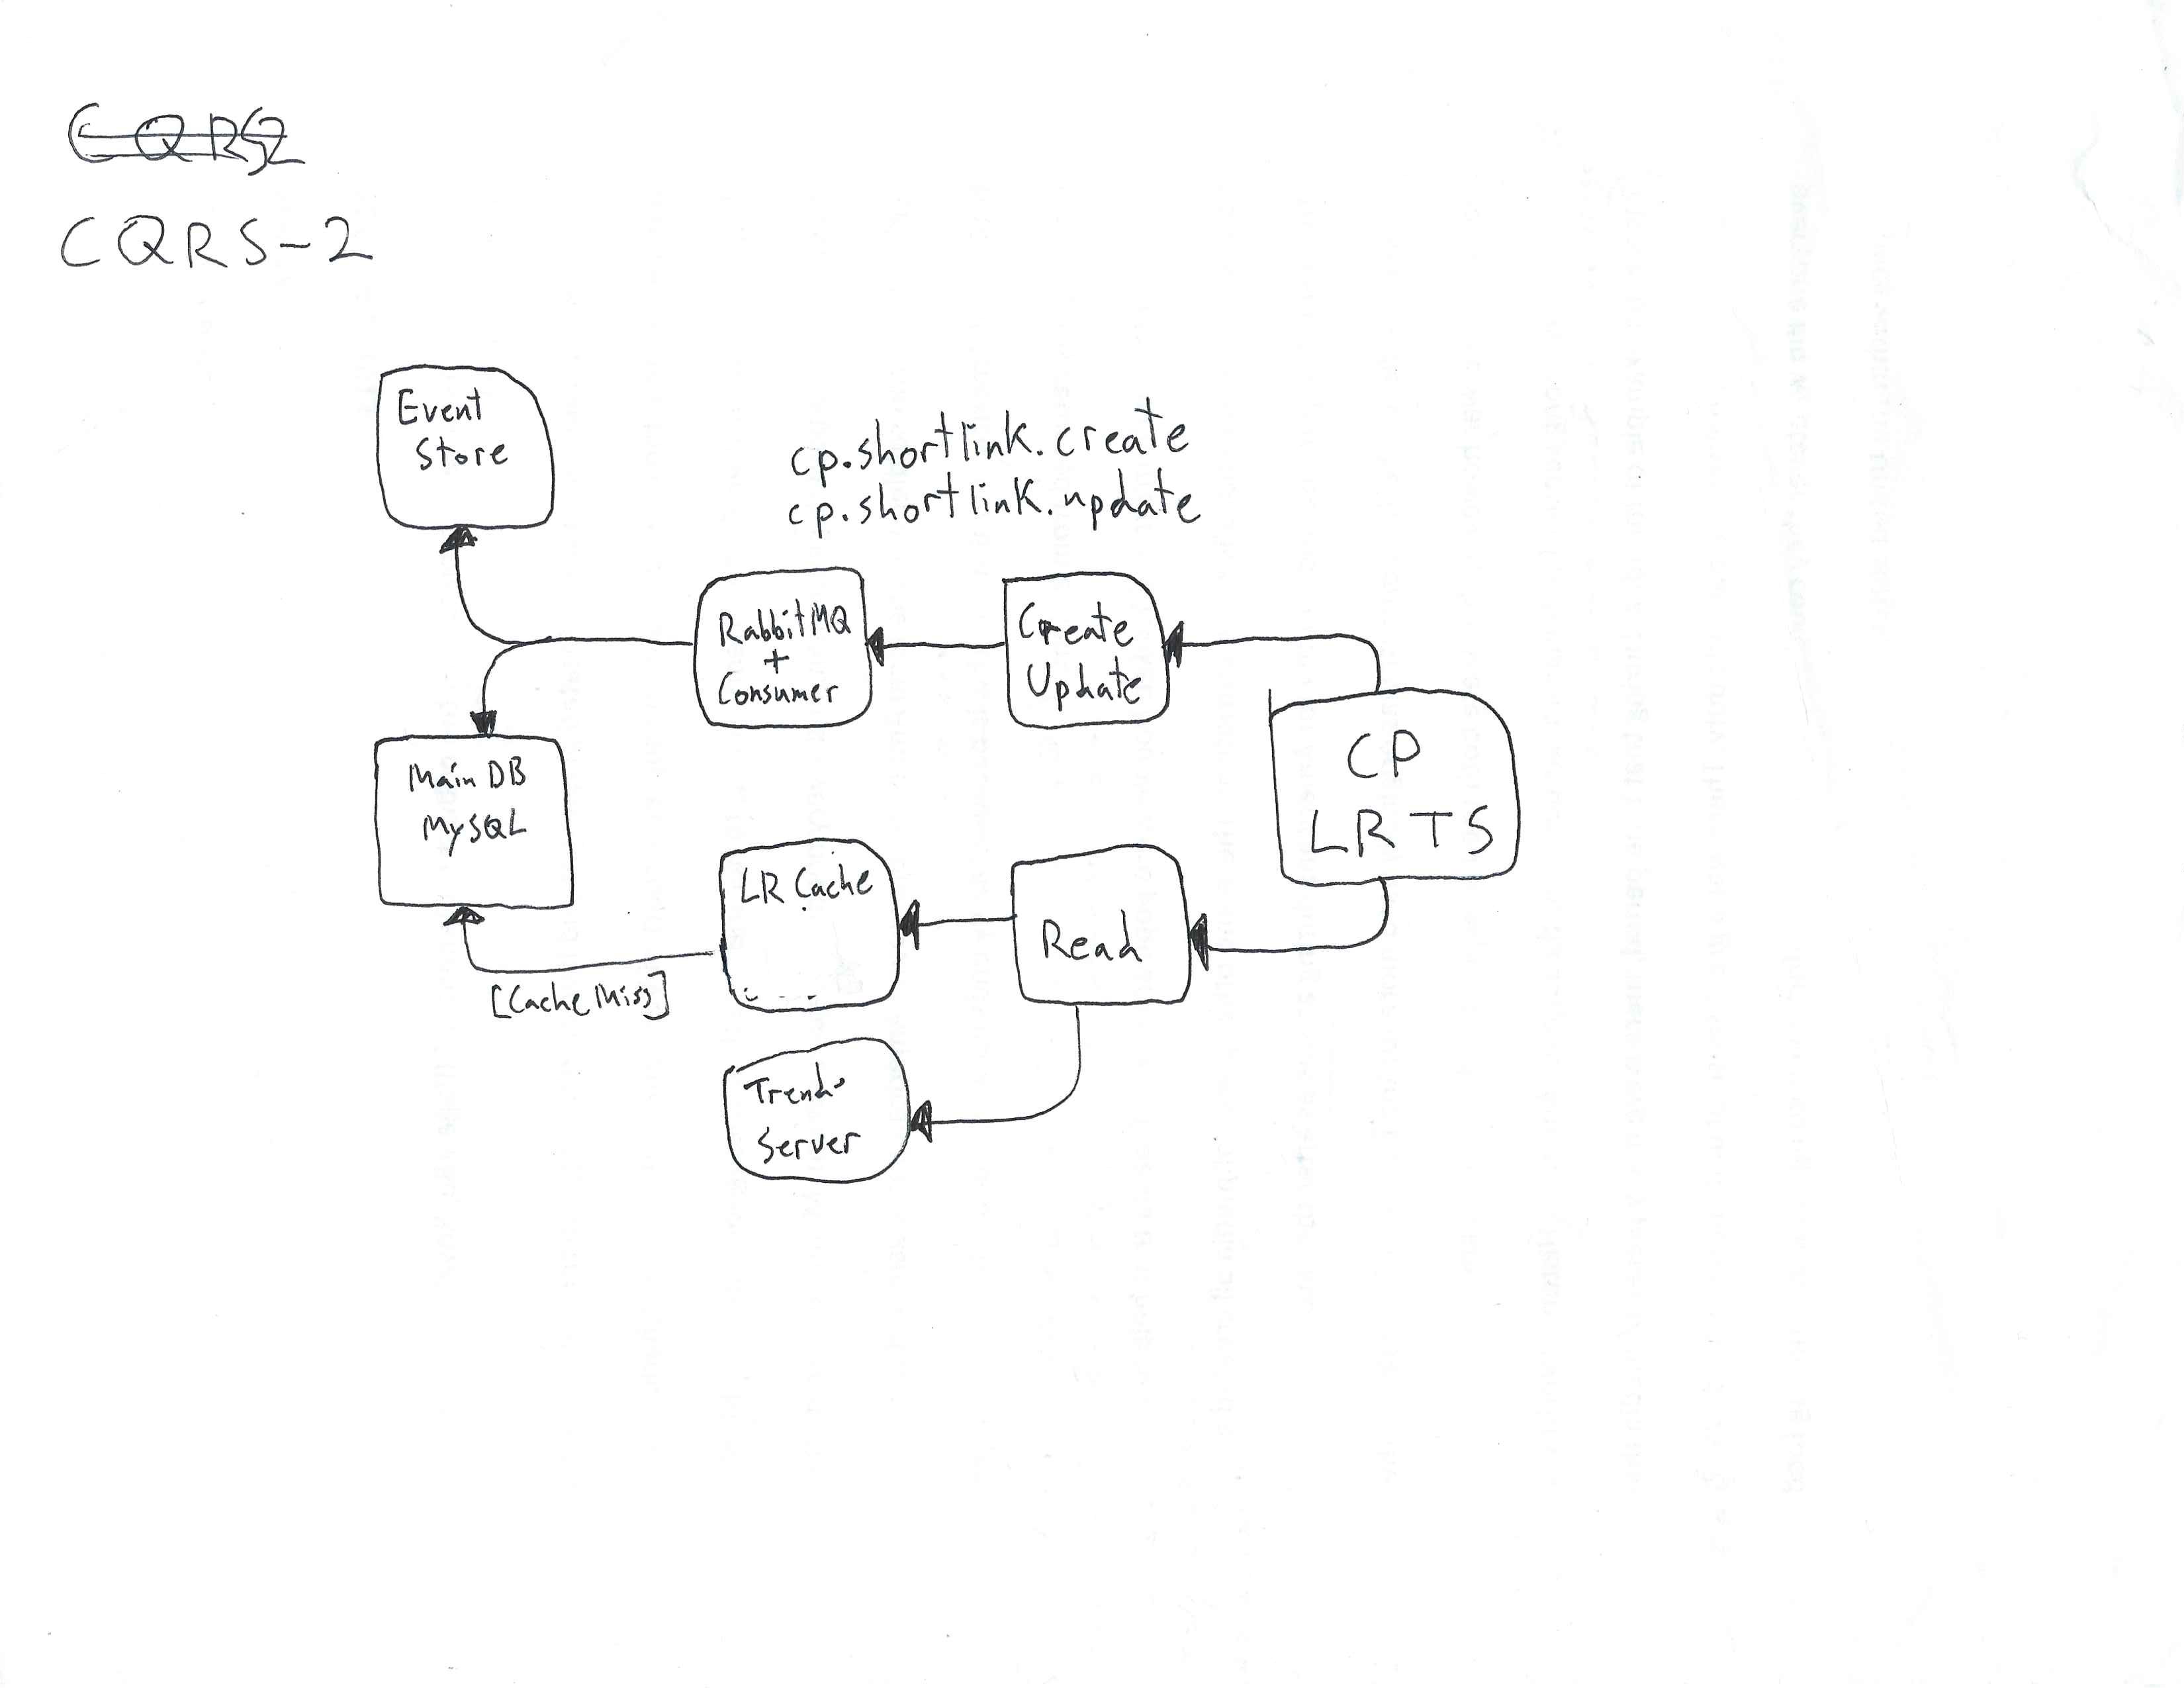 CQRS2
CQRS-2
Event
Store
cp.shortlink.create
cp.shortlink.update
RabbitMQ
+
Consumer
Create
Update
CP
LR TS
Main DB
MySQL
LR Cache
Read
[Cache Miss]
Trend
Server